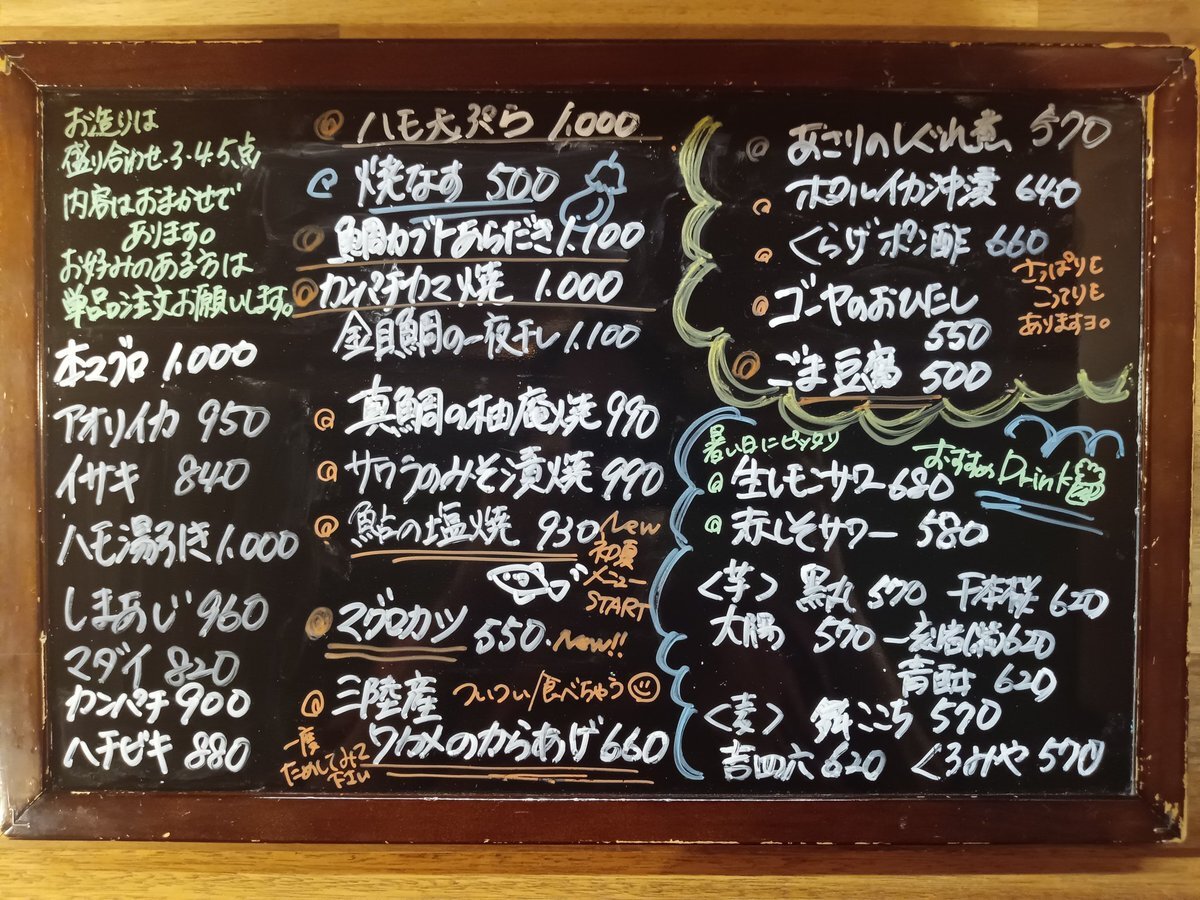 お造りは
盛り合わせ・3・4・5、点
内容はおまかせで
あります。
お好みのある方は
単品ご注文お願いします。
本マグロ 1.000
アオリイカ 950
イサキ 840
ハモ湯引き 1.000
しまあじ 960
マダイ 820
カンパチ 900
ヘチビキ 880
ハモ天ぷら 1.000
焼なす 500
鯛カブトあらだき 1.100
カンパチカマ焼 1.000
金目鯛の一夜干し 1.100
真鯛の柚庵焼 990
サワラのみそ漬焼 990
鮎の塩焼 930
New
初夏
メニュー
START
マグロカツ 550. New!!
三陸産 ついつい食べちゃう
ワカメのからあげ 660
一度
ためしてみて
下さい
あさりのしぐれ煮 570
ホタルイカ沖漬 640
くらげポン酢 660
さっぱりも
こってりも
ありますヨ。
ゴーヤのおひたし
550
ごま豆腐 500
暑い日にピッタリ
おすすめ Drink
生レモンサワー 680
赤しそサワー 580
<芋> 黒丸 570 千本桜 620
大陽 570 一刻者(紫) 620
青酎 620
<麦> 舞ここち 570
吉四六 620 くろみや 570